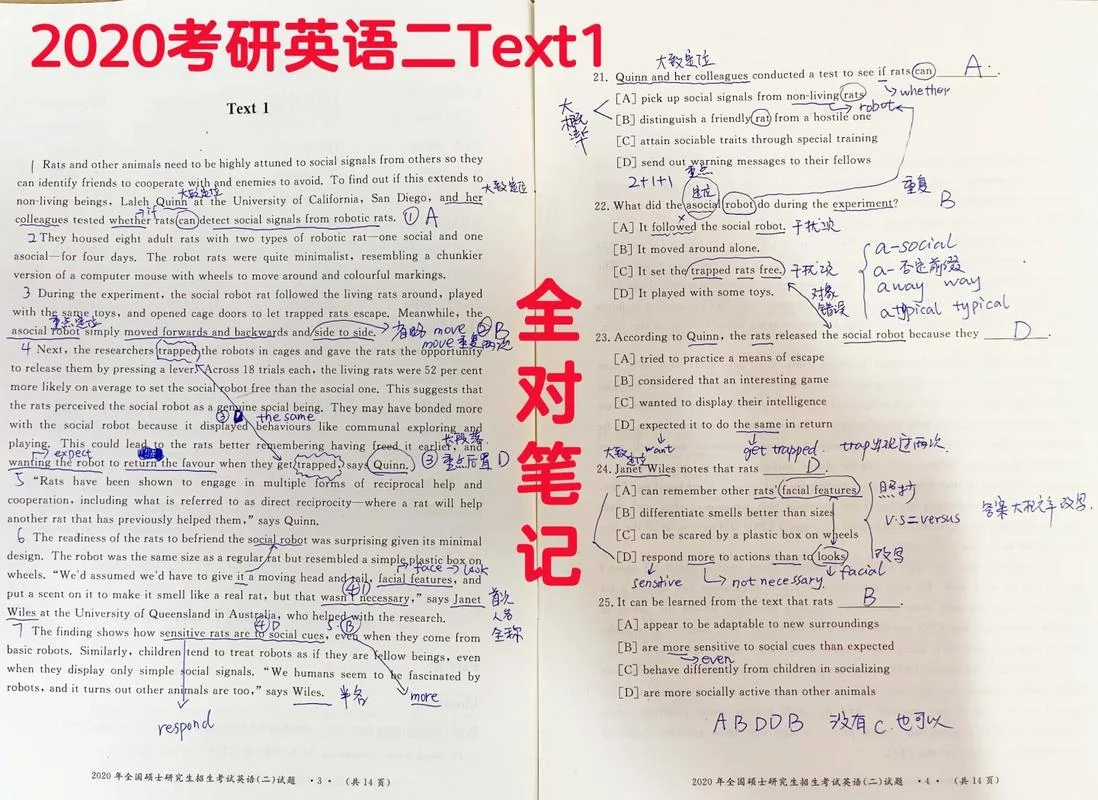 2020考研英语二Text1
全对笔记
Text 1
1 Rats and other animals need to be highly attuned to social signals from others so they
can identify friends to cooperate with and enemies to avoid. To find out if this extends to
大致定位
大致定位
non-living beings, Laleh Quinn at the University of California, San Diego, and her
if
colleagues tested whether rats can detect social signals from robotic rats. ① A
2 They housed eight adult rats with two types of robotic rat—one social and one
asocial—for four days. The robot rats were quite minimalist, resembling a chunkier
version of a computer mouse with wheels to move around and colourful markings.
3 During the experiment, the social robot rat followed the living rats around, played
with the same toys, and opened cage doors to let trapped rats escape. Meanwhile, the
重点定位
asocial robot simply moved forwards and backwards and side to side. 有的 move ② B
move 重复两边
4 Next, the researchers trapped the robots in cages and gave the rats the opportunity
to release them by pressing a lever. Across 18 trials each, the living rats were 52 per cent
more likely on average to set the social robot free than the asocial one. This suggests that
the rats perceived the social robot as a genuine social being. They may have bonded more
③ the same
with the social robot because it displayed behaviours like communal exploring and
playing. This could lead to the rats better remembering having freed it earlier, and
expect
wanting the robot to return the favour when they get trapped, says Quinn. ③ 重点后置 D
5 "Rats have been shown to engage in multiple forms of reciprocal help and
cooperation, including what is referred to as direct reciprocity—where a rat will help
another rat that has previously helped them," says Quinn.
6 The readiness of the rats to befriend the social robot was surprising given its minimal
design. The robot was the same size as a regular rat but resembled a simple plastic box on
face → look
wheels. "We'd assumed we'd have to give it a moving head and tail, facial features, and
④D
put a scent on it to make it smell like a real rat, but that wasn't necessary," says Janet
首次
人名
全称
Wiles at the University of Queensland in Australia, who helped with the research.
④D 5. B
7 The finding shows how sensitive rats are to social cues, even when they come from
basic robots. Similarly, children tend to treat robots as if they are fellow beings, even
when they display only simple social signals. "We humans seem to be fascinated by
robots, and it turns out other animals are too," says Wiles. 半名 more
respond
2020 年全国硕士研究生招生考试英语(二)试题 ·3· (共 14 页)
大致定位
21. Quinn and her colleagues conducted a test to see if rats can A.
whether
[A] pick up social signals from non-living rats
robot
[B] distinguish a friendly rat from a hostile one
大概
[C] attain sociable traits through special training
[D] send out warning messages to their fellows
2+1+1 重点
定位
重复
22. What did the asocial robot do during the experiment? B
[A] It followed the social robot. 干扰项
[B] It moved around alone.
[C] It set the trapped rats free. 干扰项
[D] It played with some toys.
a-social
a-否定前缀
away way
atypical typical
对象
错误
23. According to Quinn, the rats released the social robot because they D.
[A] tried to practice a means of escape
[B] considered that an interesting game
[C] wanted to display their intelligence
[D] expected it to do the same in return
want get trapped. trap出现过两次.
大致定位
24. Janet Wiles notes that rats D.
[A] can remember other rats' facial features
照抄
[B] differentiate smells better than sizes
V·S = versus
[C] can be scared by a plastic box on wheels
[D] respond more to actions than to looks
改写
sensitive not necessary. facial
25. It can be learned from the text that rats B.
[A] appear to be adaptable to new surroundings
[B] are more sensitive to social cues than expected
even
[C] behave differently from children in socializing
[D] are more socially active than other animals
A B D D B 没有 C. 也可以
2020 年全国硕士研究生招生考试英语(二)试题 ·4· (共 14 页)